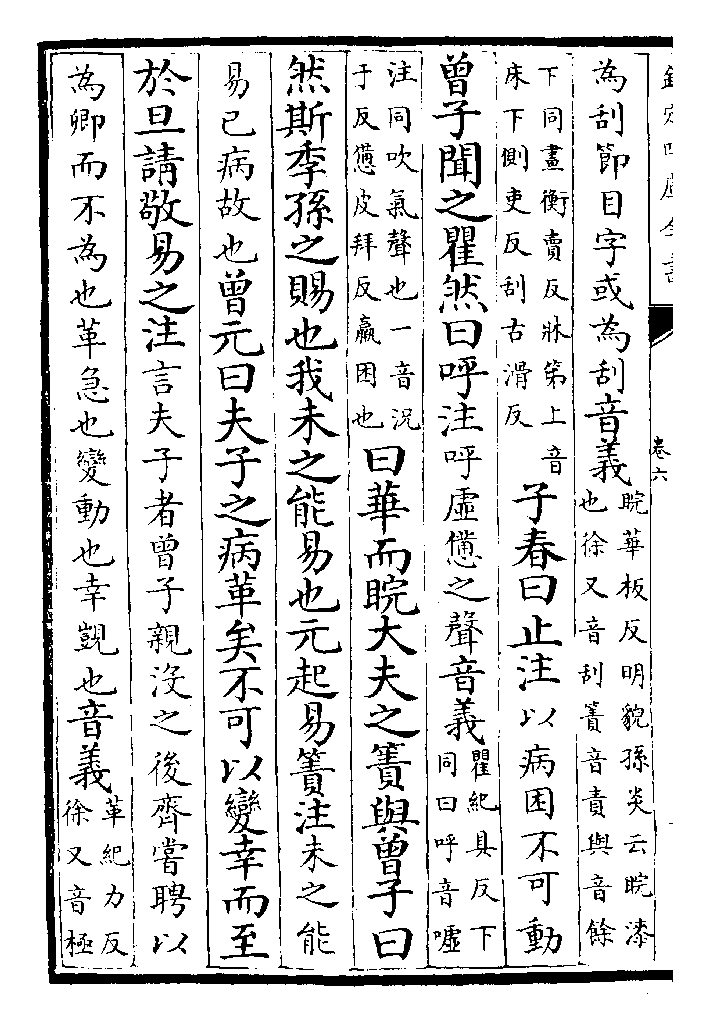 欽定四庫全書
卷六
為刮節目字或為刮音義
睆華板反明貌孫炎云睆漆
也徐又音刮簀音責與音餘
下同畫衡賣反牀第上音
床下側吏反刮古滑反
子春曰止注以病困不可動
曾子聞之瞿然曰呼注呼虛憊之聲音義
瞿紀具反下
同曰呼音噓
注同吹氣聲也一音況
于反憊皮拜反羸困也
曰華而睆大夫之簀與曾子曰
然斯季孫之賜也我未之能易也元起易簀注未之能
易已病故也曾元曰夫子之病革矣不可以變幸而至
於旦請敬易之注言夫子者曾子親沒之後齊嘗聘以
為卿而不為也革急也變動也幸覬也音義
革紀力反
徐又音極